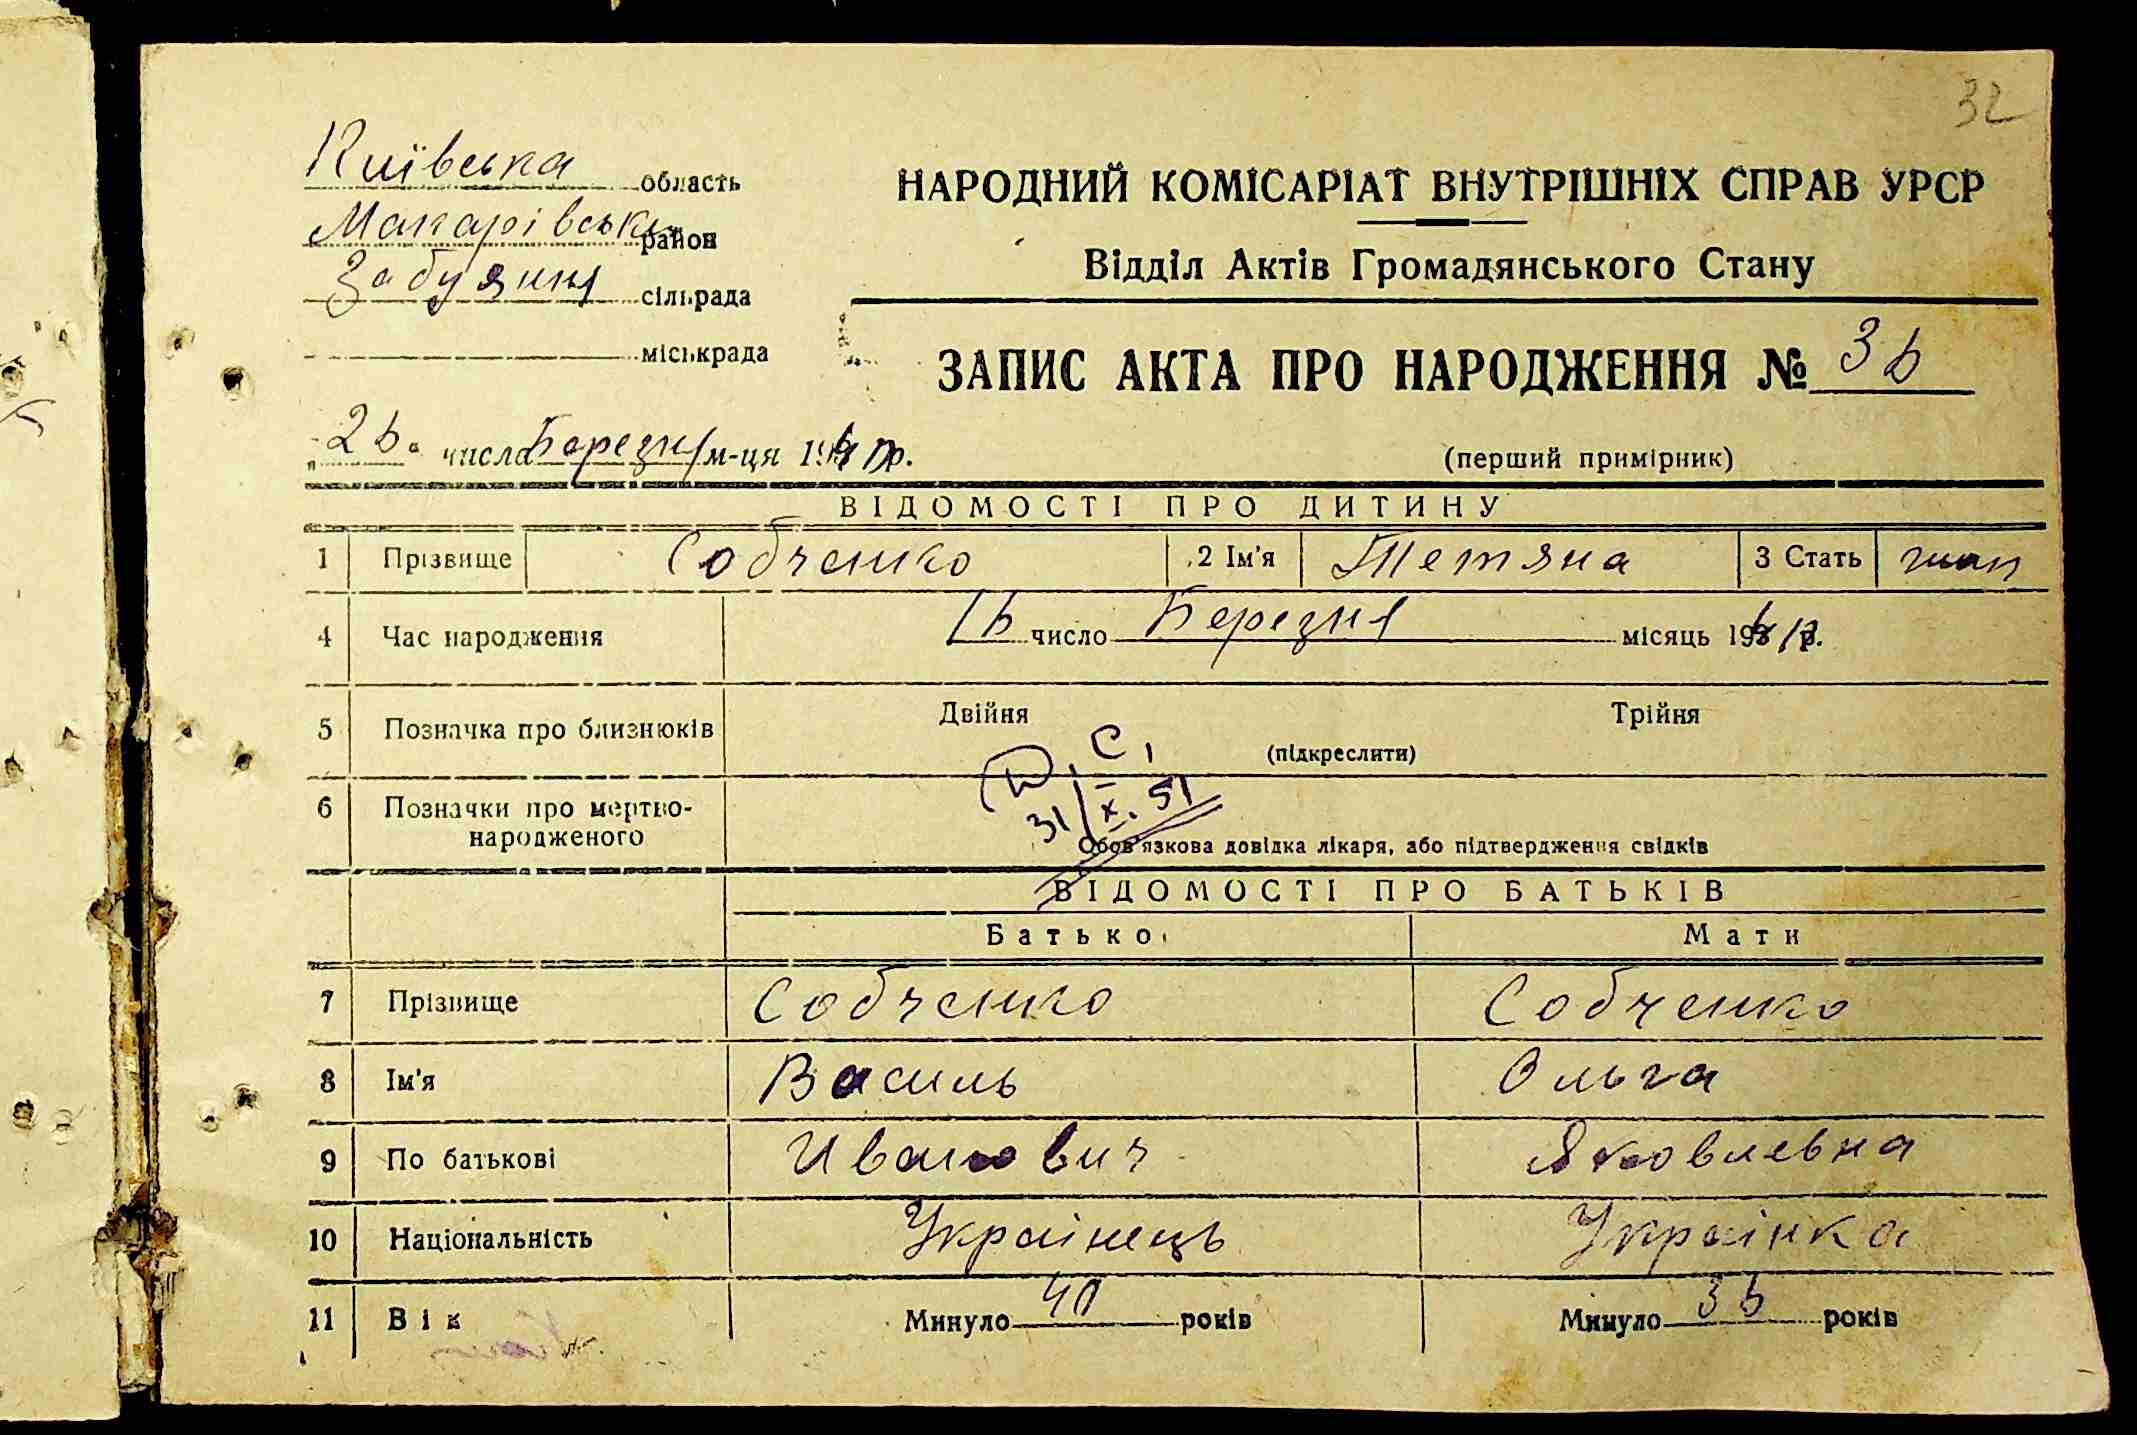 32
Київська область
Макарівськи район
Забуяння сільрада
міськрада
НАРОДНИЙ КОМІСАРІАТ ВНУТРІШНІХ СПРАВ УРСР
Відділ Актів Громадянського Стану
ЗАПИС АКТА ПРО НАРОДЖЕННЯ № 36
„26“ числа Березня м-ця 1940 р.
(перший примірник)
ВІДОМОСТІ ПРО ДИТИНУ
1 Прізвище Собченко 2 Ім'я Тетяна 3 Стать жан
4 Час народження 16 число Березня місяць 194 р.
5 Позначка про близнюків Двійня Трійня
(підкреслити)
С,
31/X. 51
6 Позначки про мертво-
народженого
Обов'язкова довідка лікаря, або підтвердження свідків
ВІДОМОСТІ ПРО БАТЬКІВ
Батько Мати
7 Прізвище Собченко Собченко
8 Ім'я Василь Ольга
9 По батькові Иванович Яковлевна
10 Національність Українець Українка
11 Вік Минуло 40 років Минуло 36 років